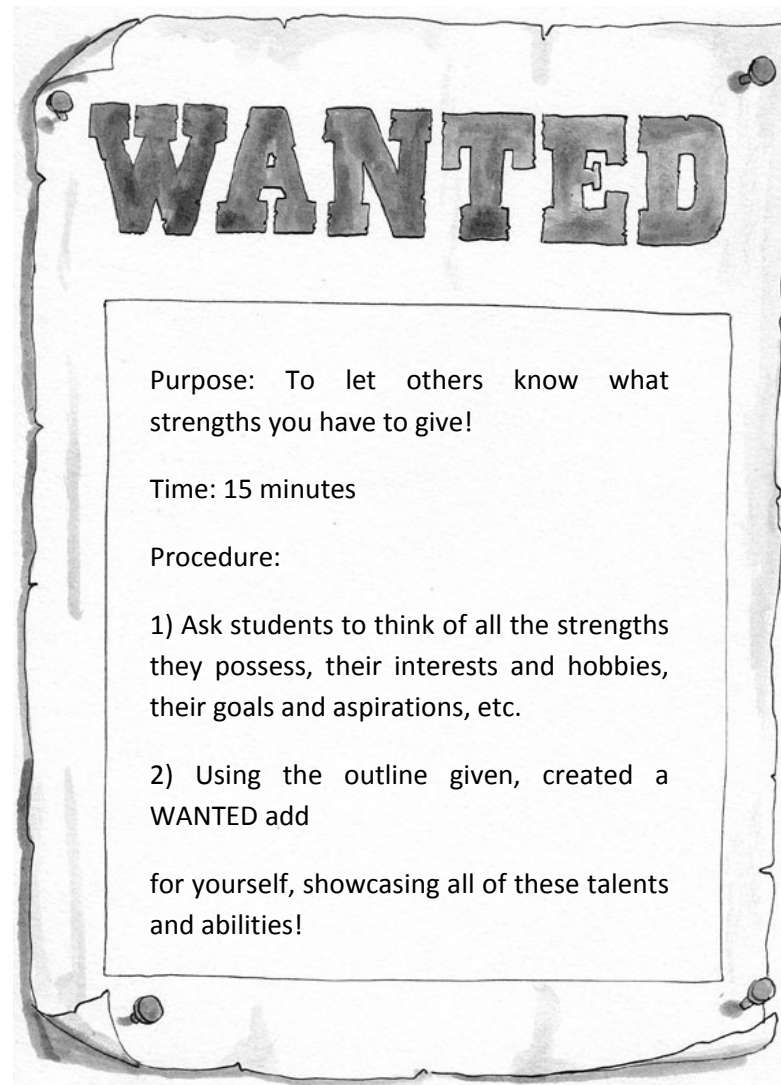 WANTED
Purpose: To let others know what
strengths you have to give!
Time: 15 minutes
Procedure:
1) Ask students to think of all the strengths
they possess, their interests and hobbies,
their goals and aspirations, etc.
2) Using the outline given, created a
WANTED add
for yourself, showcasing all of these talents
and abilities!